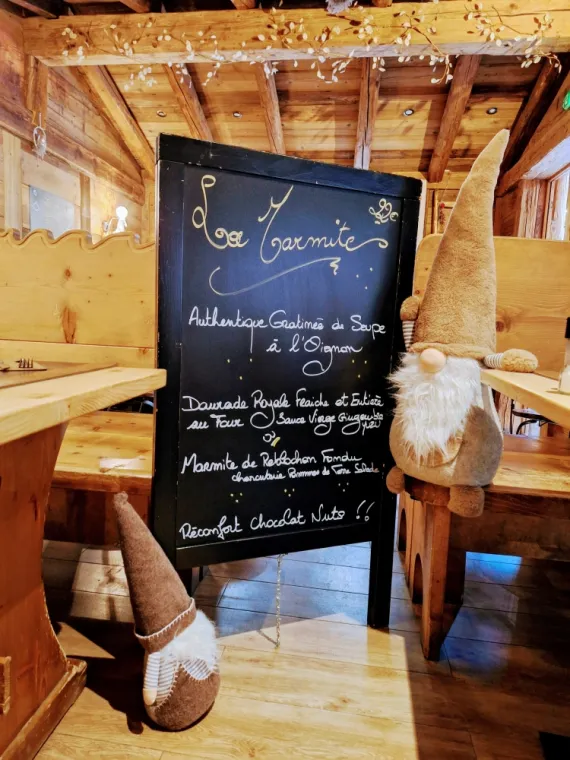 La Marmite
Authentique Gratinée de Soupe
à l'Oignon
Daurade Royale Fraiche et Entière
au Four Sauce Vierge
Où
Marmite de Reblochon Fondu
charcuterie Pommes de Terre Salade
Réconfort Chocolat Nuts !!